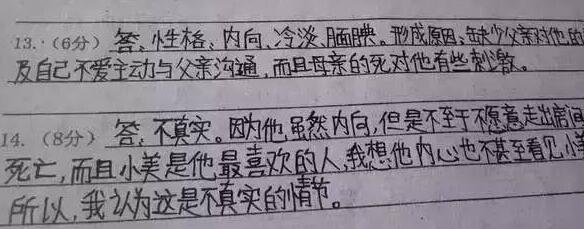 13.(6分) 答:性格:内向、冷淡、腼腆。形成原因:缺少父亲对他的
及自己不爱主动与父亲沟通,而且母亲的死对他有些刺激。
14.(8分) 答:不真实。因为他虽然内向,但是不至于不愿意走出病
死亡,而且小美是他最喜欢的人,我想他内心也不甚至看见小
所以,我认为这是不真实的情节。